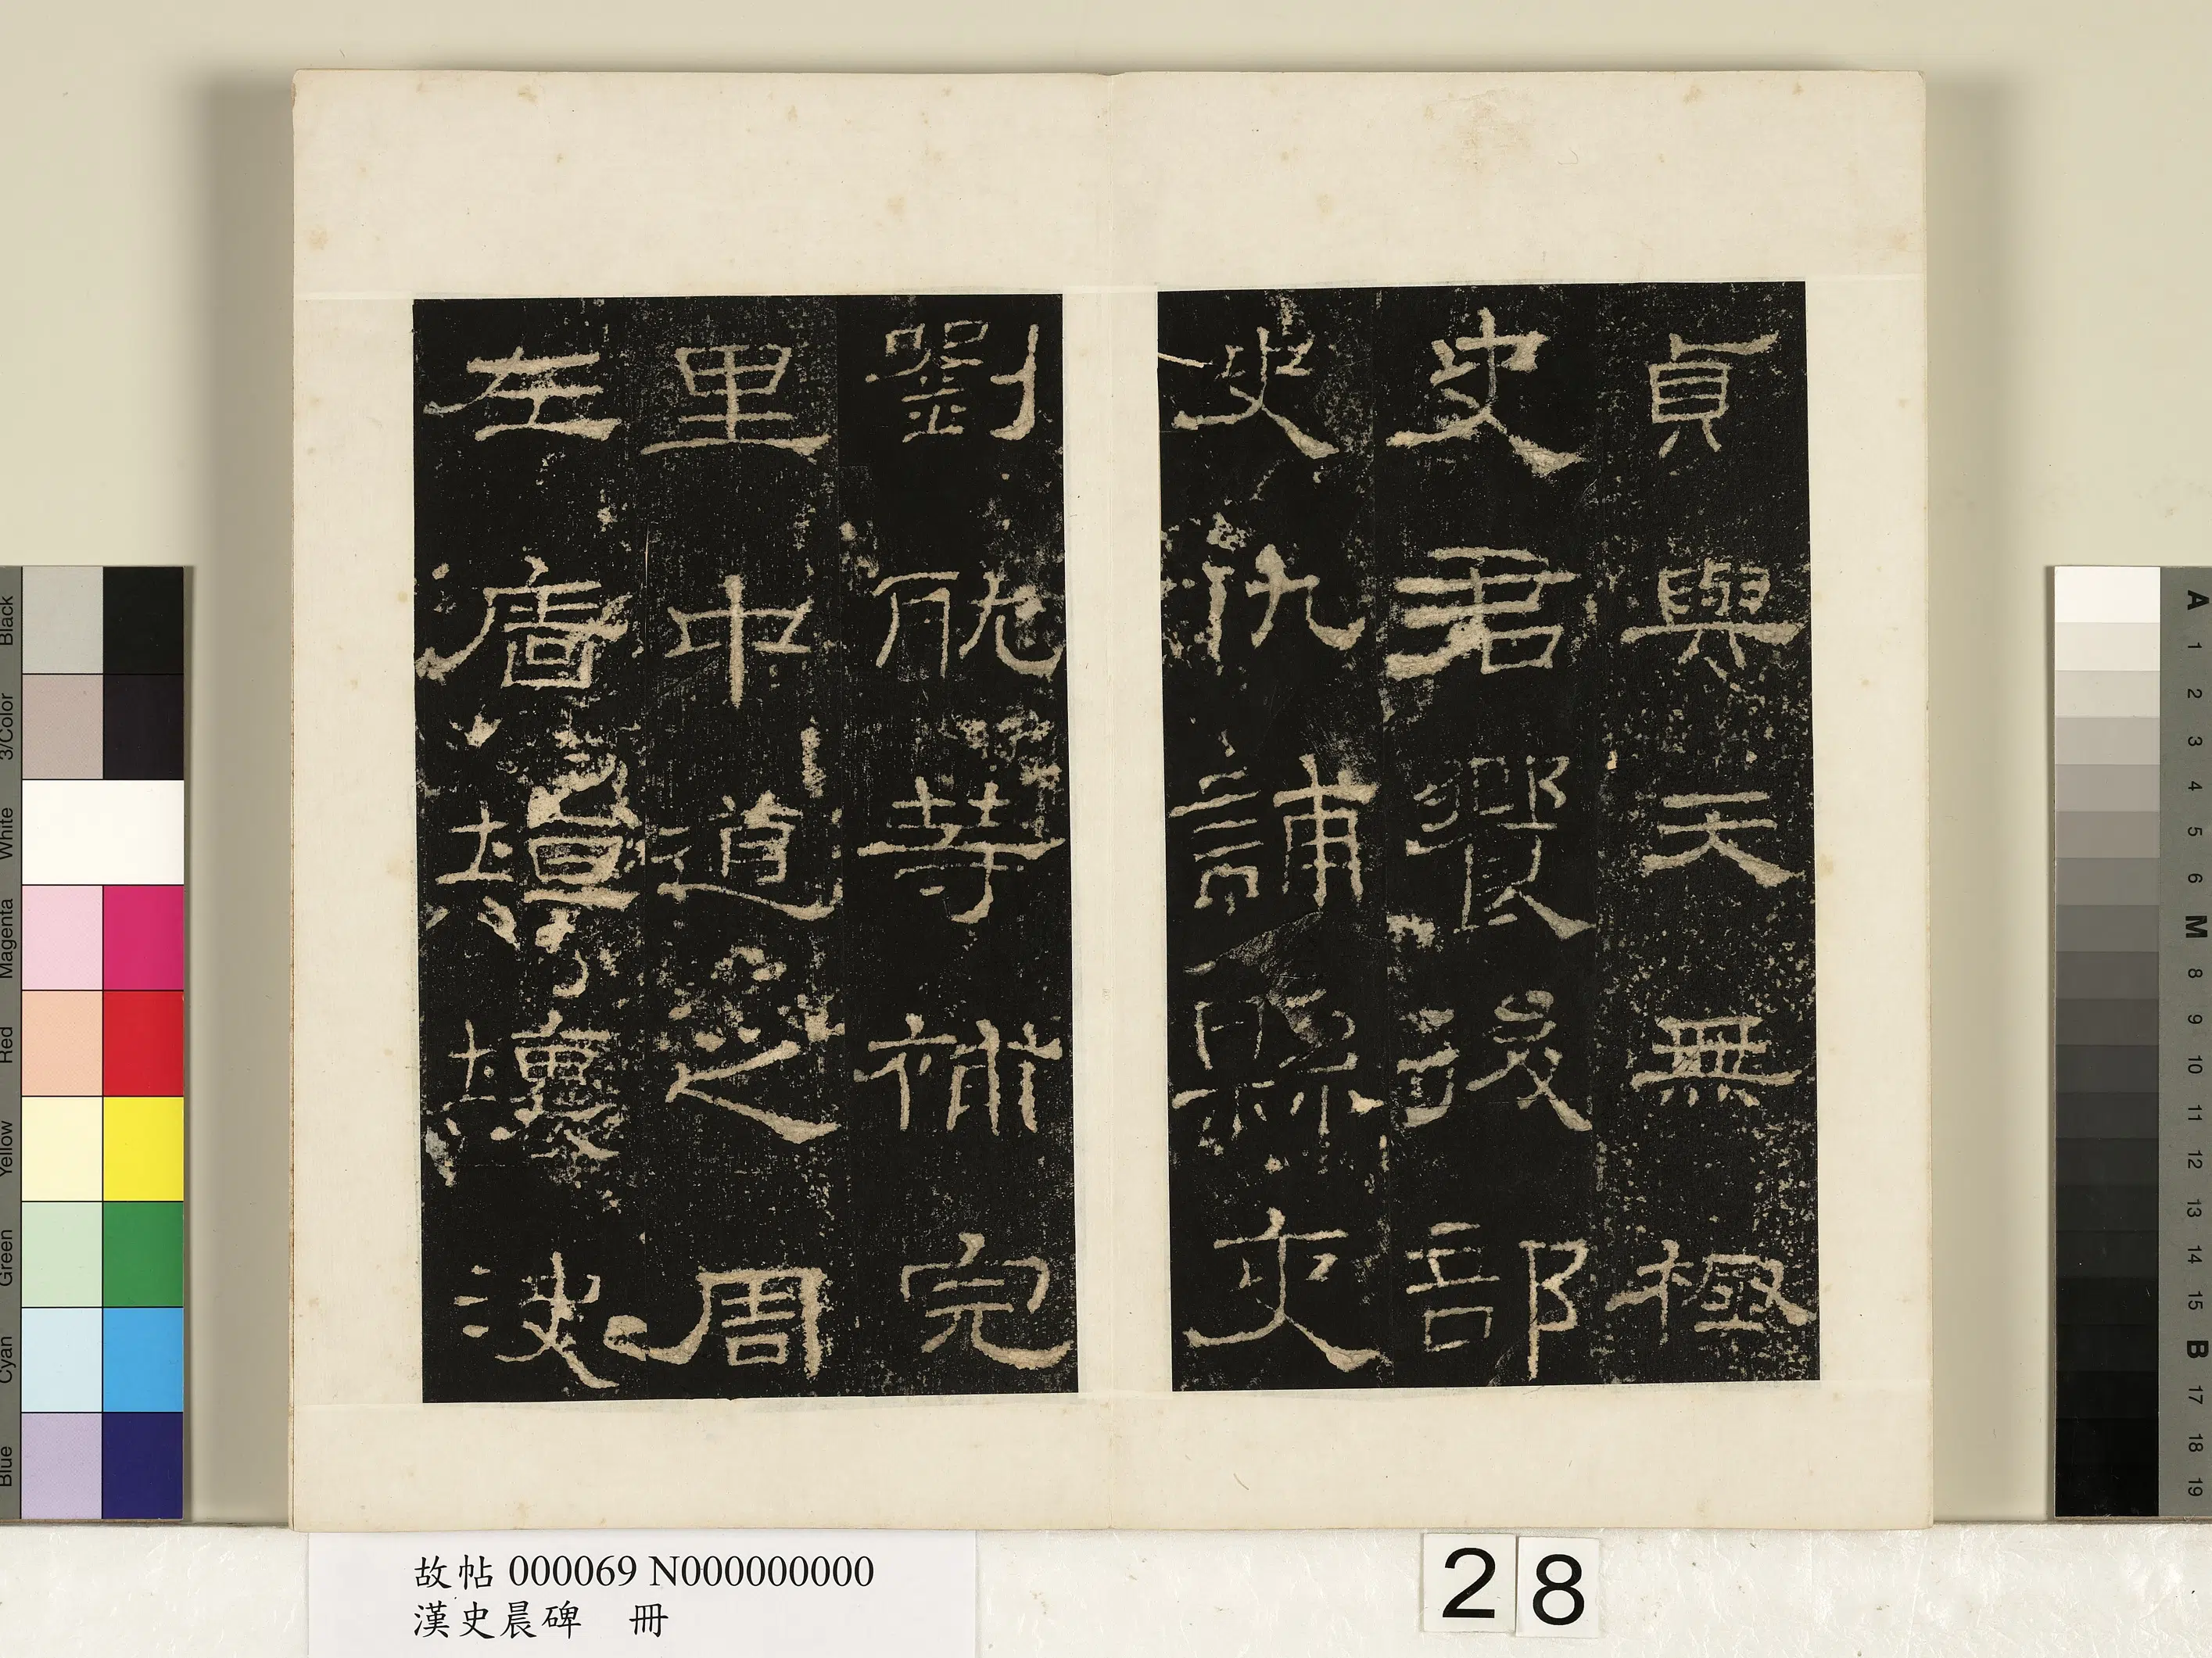 貞與天無極
史君饗後部
史仇誧縣吏
劉耽等補完
里中道之周
左廧垣壞決
故帖 000069 N000000000
漢史晨碑 冊
28
Black
3/Color
White
Magenta
Red
Yellow
Green
Cyan
Blue
A
1
2
3
4
5
6
M
8
9
10
11
12
13
14
15
B
17
18
19